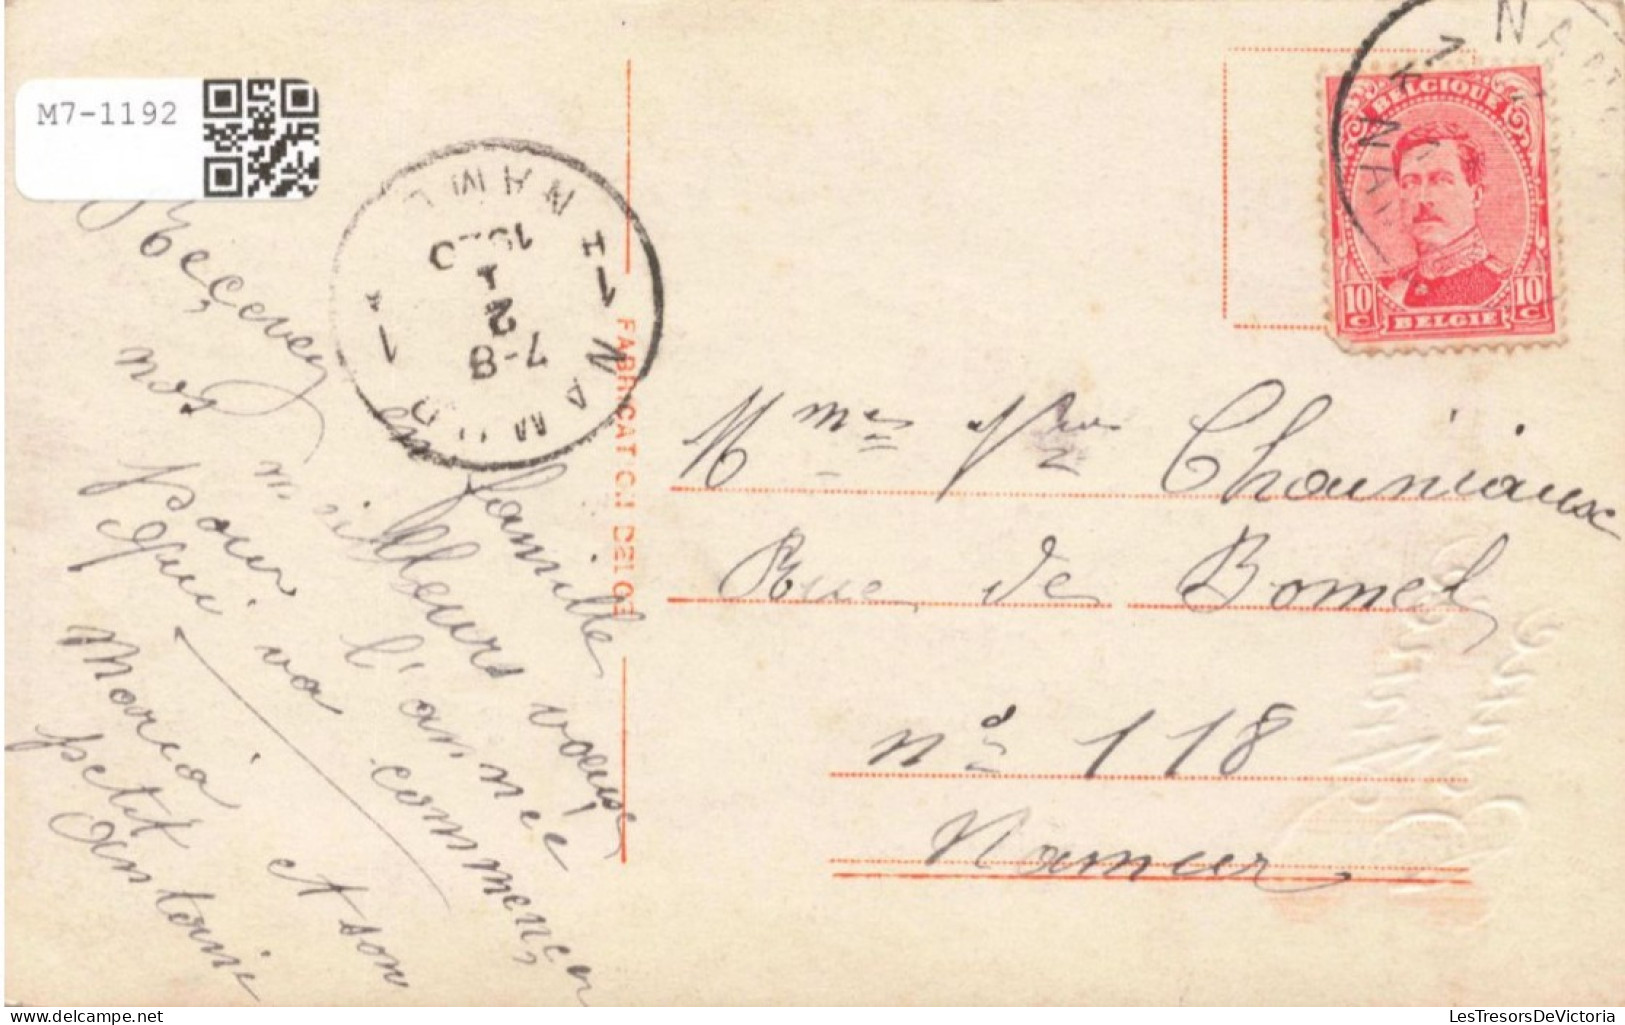 M7-1192
Recevez en famille
nos meilleurs vœux
pour l'année
qui va commencer
Maria et son
petit Antoine
NAMUR 1
7-8
2 1
1920
FABRICATION BELGE
BELGIQUE
10 C
10 C
BELGIE
Mme Vve Chainiaux
Rue de Bomel
no 118
Namur
Bonne Année
LesTresorsDeVictoria